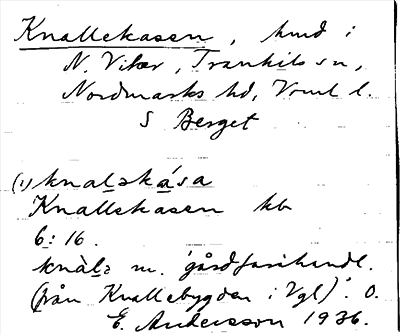 Knallekasen, hmd i
N. Viker, Trankils sn,
Nordmarks hd, Vrml l.
S Berget
(1) knalǝkása
Knallekasen kb
6:16.
knàlǝ m. 'gårdfarihandl.
(från Knallebygden i Vgl)'. O.
E. Andersson 1936.